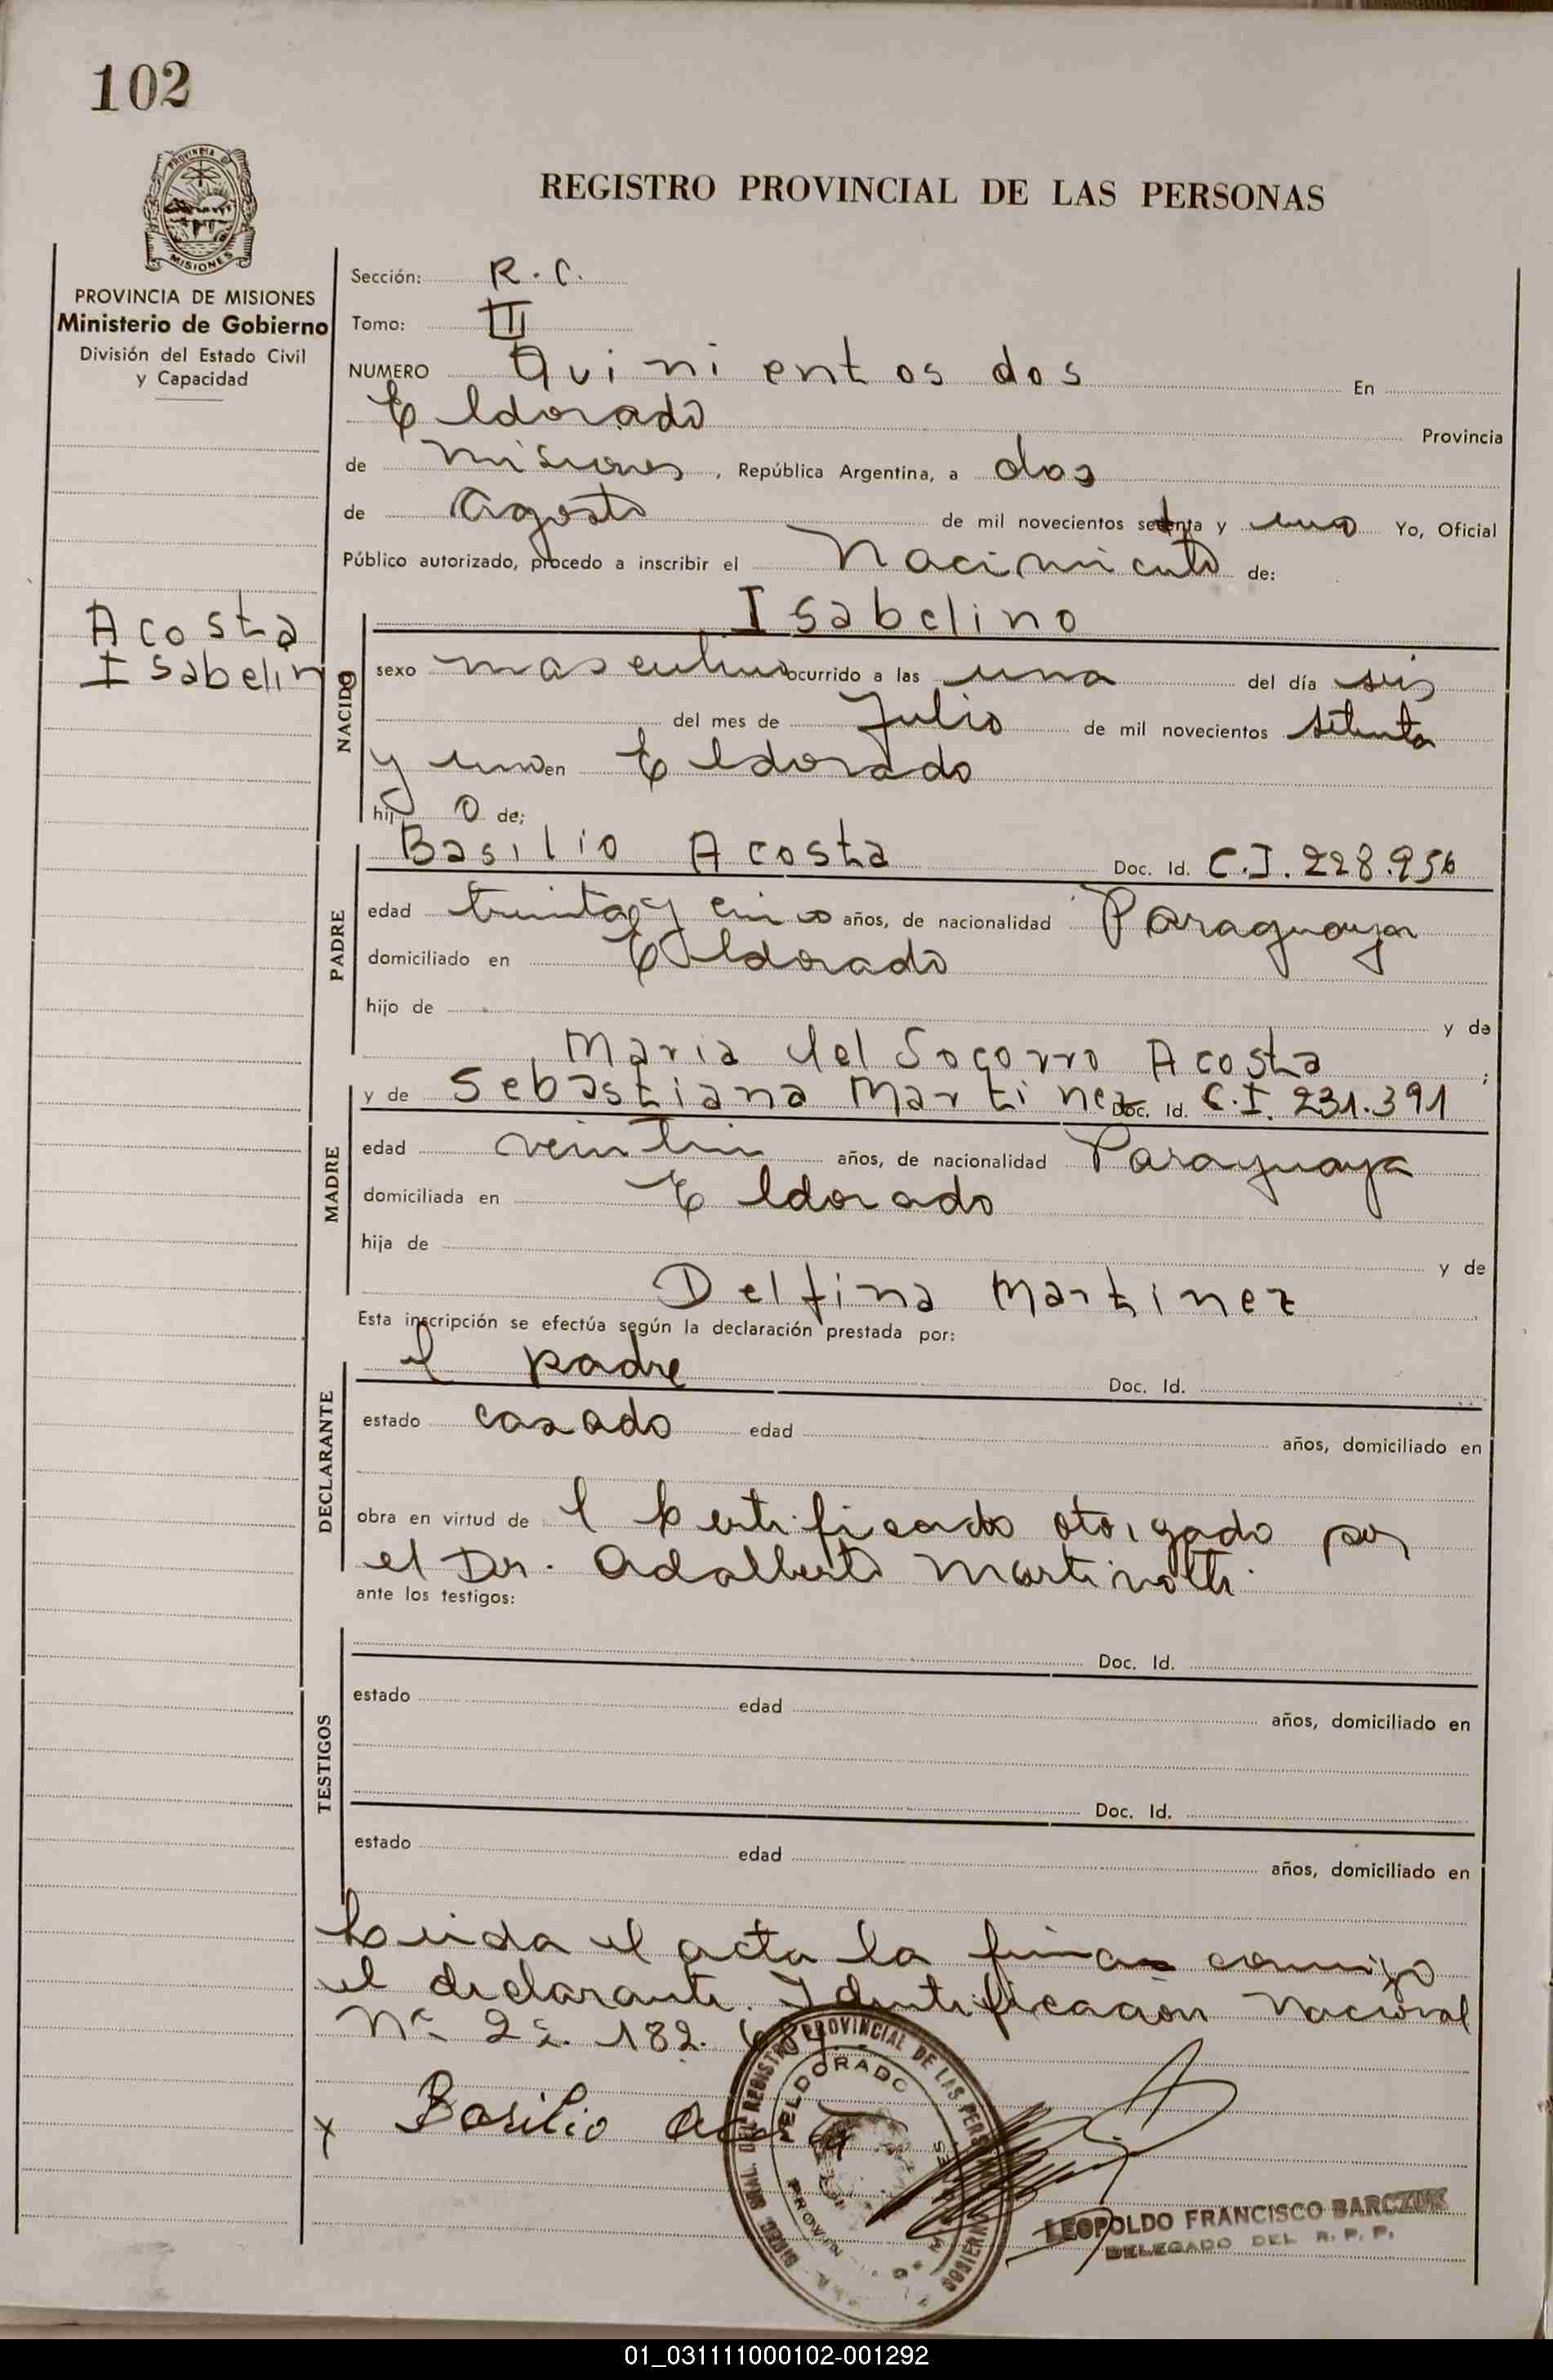 102
PROVINCIA DE
MISIONES
REGISTRO PROVINCIAL DE LAS PERSONAS
PROVINCIA DE MISIONES
Ministerio de Gobierno
División del Estado Civil
y Capacidad
Acosta
Isabelino
Sección: R. C.
Tomo: III
NUMERO Quinientos dos En
Eldorado Provincia
de Misiones, República Argentina, a dos
de Agosto de mil novecientos setenta y uno Yo, Oficial
Público autorizado, procedo a inscribir el Nacimiento de:
Isabelino
NACIDO
sexo masculino ocurrido a las una del día seis
del mes de Julio de mil novecientos setenta
y uno en Eldorado
hijo de;
PADRE
Basilio Acosta Doc. Id. C.I. 228.956
edad treinta y cinco años, de nacionalidad Paraguaya
domiciliado en Eldorado
hijo de y de
Maria del Socorro Acosta ;
MADRE
y de Sebastiana Martinez Doc. Id. C.I. 231.391
edad años, de nacionalidad Paraguaya
domiciliada en Eldorado
hija de y de
Delfina Martinez
Esta inscripción se efectúa según la declaración prestada por:
DECLARANTE
el padre Doc. Id.
estado casado edad años, domiciliado en
obra en virtud de l certificado otorgado por
el Dr. Adalberto Martinotti
ante los testigos:
TESTIGOS
Doc. Id.
estado edad años, domiciliado en
Doc. Id.
estado edad años, domiciliado en
Leida el acta la firma conmigo
el declarante. Identificacion Nacional
Nº 22.182.
x Basilio Acosta
DEL REGISTRO PROVINCIAL DE LAS PERS
ELDORADO
LEOPOLDO FRANCISCO BARCZUK
DELEGADO DEL R. P. P.
01_031111000102-001292